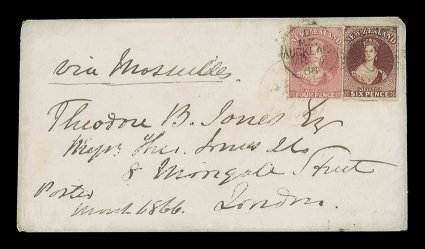 NEW ZEALAND
FOUR PENCE
NEW ZEALAND
SIX PENCE
AUCKLAND
via Marseilles.
Theodore B. Jones Esq
Messrs Theo. Jones & Co
8 Moorgate Street
London.
Posted
March 1866.